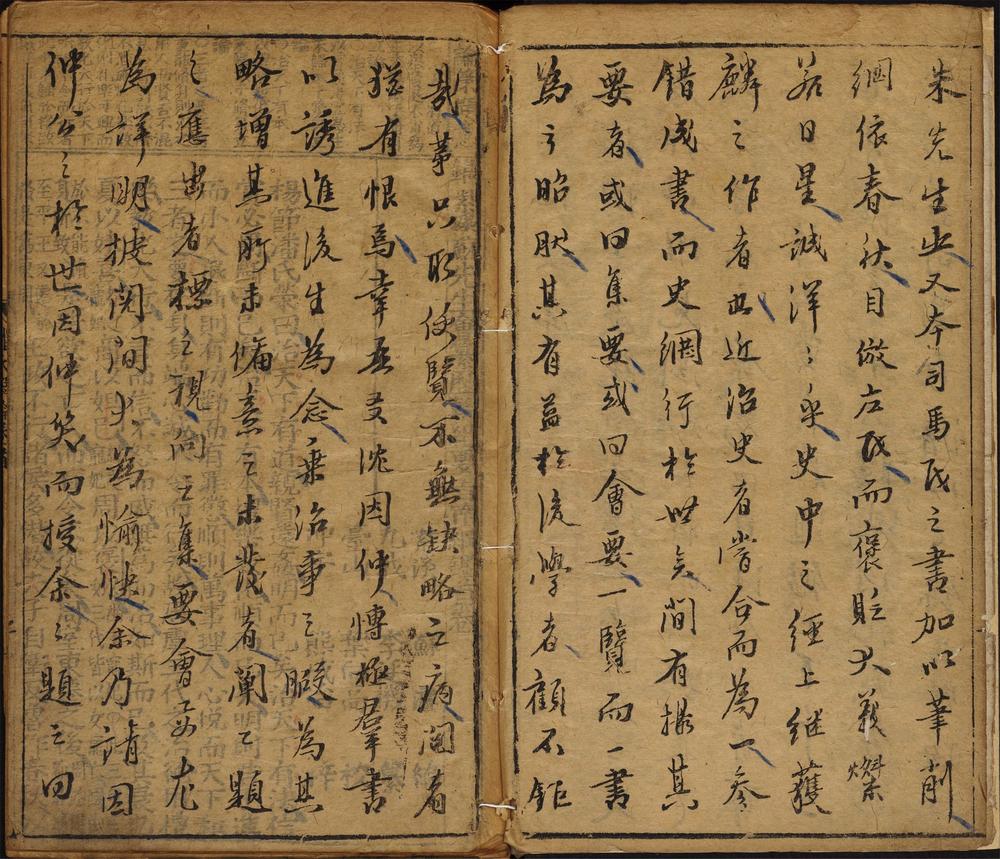 朱先生出又本司馬氏之書加以筆削
綱依春秋目倣左氏而褒貶大義燦
若日星誠洋〻乎史中之經上继獲
麟之作者也近治史者嘗合而為一參
錯成書而史綱行於世矣間有撮其
要者或曰集要或曰會要一覽而一書
為之昭然其有益於後學者顧不鉅
哉茅只取便覽不無缺略之病間者
猶有恨焉幸吾友沈因仲慱極羣書
以誘進後生為念乘治事之暇為其
略增其所未備意之未莈者闡之題
之應出者標之視向之集要會要尤
為詳明披閱間大為愉快余乃請因
仲公之於世因仲笑而授余〻題之曰